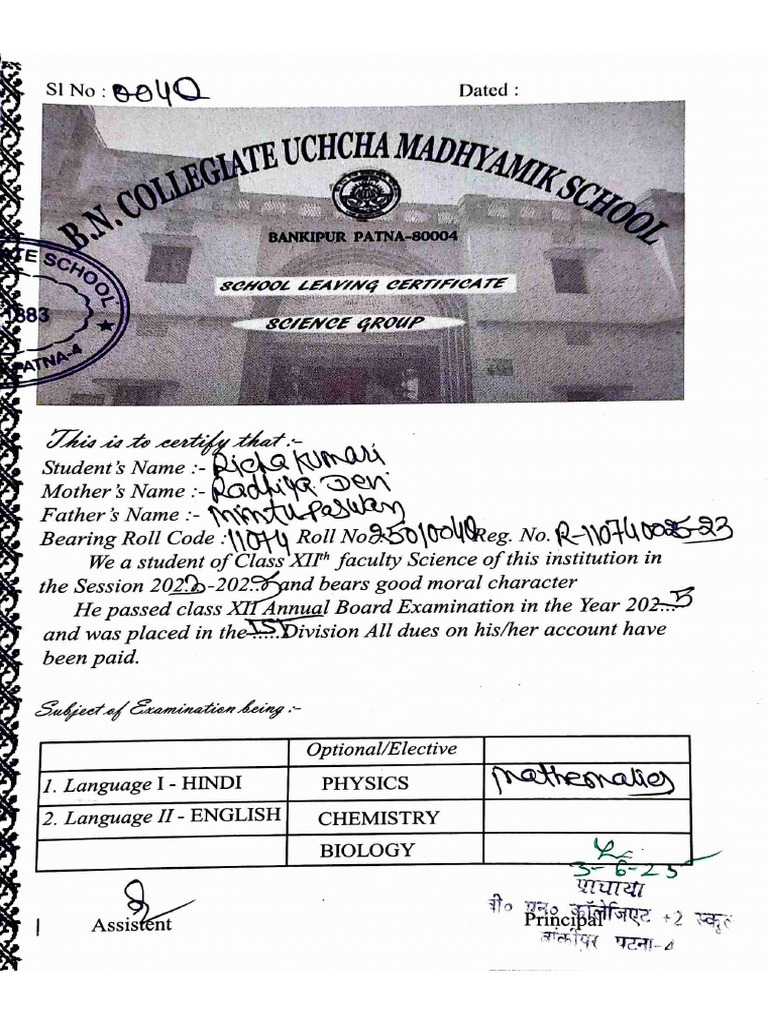 Sl No : 0040 Dated :
B.N. COLLEGIATE UCHCHA MADHYAMIK SCHOOL
BANKIPUR PATNA-80004
SCHOOL LEAVING CERTIFICATE
SCIENCE GROUP
ATE SCHOOL
1883
PATNA-4
This is to certify that :-
Student's Name :- Richa Kumari
Mother's Name :- Radhiya Devi
Father's Name :- Mintu Paswan
Bearing Roll Code : 11074 Roll No 25010040 Reg. No. R-110740025-23
We a student of Class XIIth faculty Science of this institution in
the Session 2023-2025 and bears good moral character
He passed class XII Annual Board Examination in the Year 202...5
and was placed in the IST Division All dues on his/her account have
been paid.
Subject of Examination being :-
Optional/Elective
1. Language I - HINDI PHYSICS Mathematics
2. Language II - ENGLISH CHEMISTRY
BIOLOGY
3-6-25
Assistent Principal
बी० एन० कॉलेजिएट +2 स्कूल
बांकीपुर पटना-4